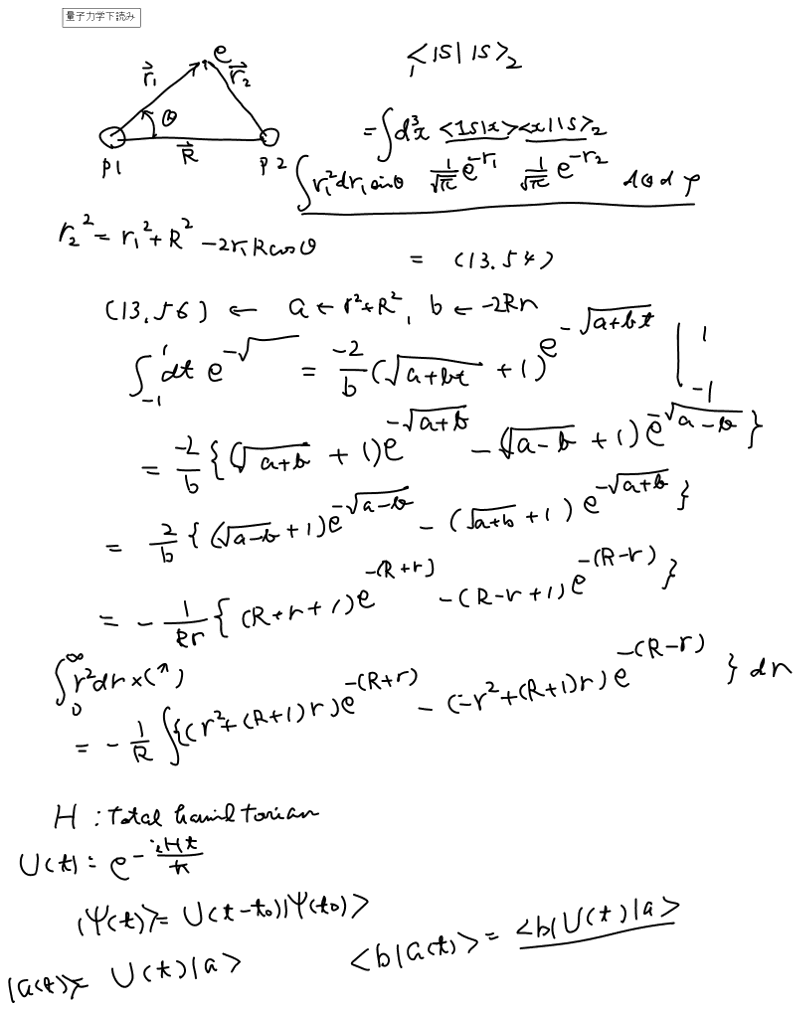 量子力学下読み
e
r⃗₁ r⃗₂
θ
R⃗
P1 P2
₁<1S|1S>₂
= ∫d³x <1S|x><x|1S>₂
∫r₁²dr₁sinθ 1/√π e^{-r₁} 1/√π e^{-r₂} dθdφ
r₂² = r₁² + R² - 2r₁Rcosθ
= (13.54)
(13.56) ← a ← r²+R², b ← -2Rr
∫_{-1}^{1} dt e^{-√} = -2/b (√(a+bt) + 1)e^{-√(a+bt)} |_{-1}^{1}
= -2/b {(√(a+b) + 1)e^{-√(a+b)} - (√(a-b) + 1)e^{-√(a-b)}}
= 2/b {(√(a-b) + 1)e^{-√(a-b)} - (√(a+b) + 1)e^{-√(a+b)}}
= - 1/Rr {(R+r+1)e^{-(R+r)} - (R-r+1)e^{-(R-r)}}
∫_0^∞ r²dr×(〃)
= - 1/R ∫{(r²+(R+1)r)e^{-(R+r)} - (-r²+(R+1)r)e^{-(R-r)}} dr
H : Total hamiltonian
U(t) = e^{-iHt/ħ}
|Ψ(t)> = U(t-t₀)|Ψ(t₀)>
|a(t)> = U(t)|a> <b|a(t)> = <b|U(t)|a>